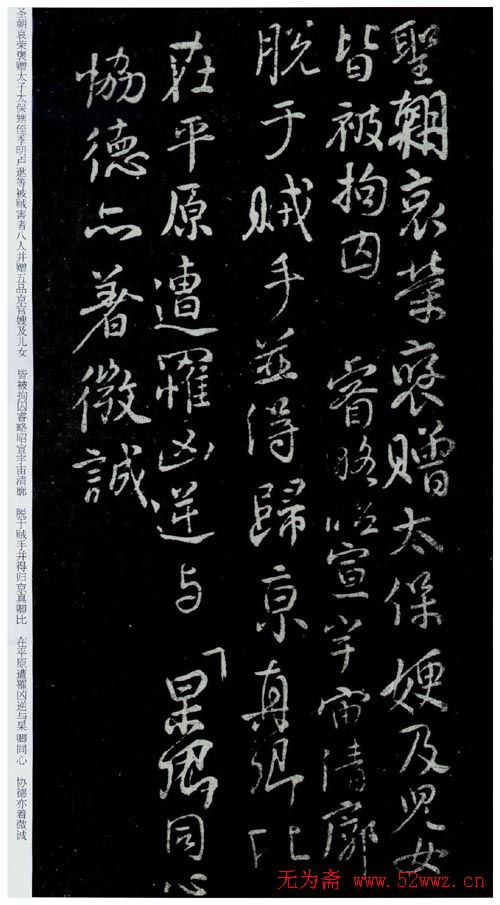 聖朝哀榮褒贈太保嫂及児女
皆被拘囚 睿略昭宣宇宙清廓
脫于賊手並得歸京真卿比
在平原遭罹凶逆与 杲卿同心
協德亦著微誠
圣朝哀荣褒赠太子太保甥侄季明卢逖等被贼害者八人并赠五品京官嫂及儿女 皆被拘囚睿略昭宣宇宙清廓 脱于贼手并得归京真卿比 在平原遭罹凶逆与杲卿同心 协德亦着微诚
无为斋 www.52wwz.cn